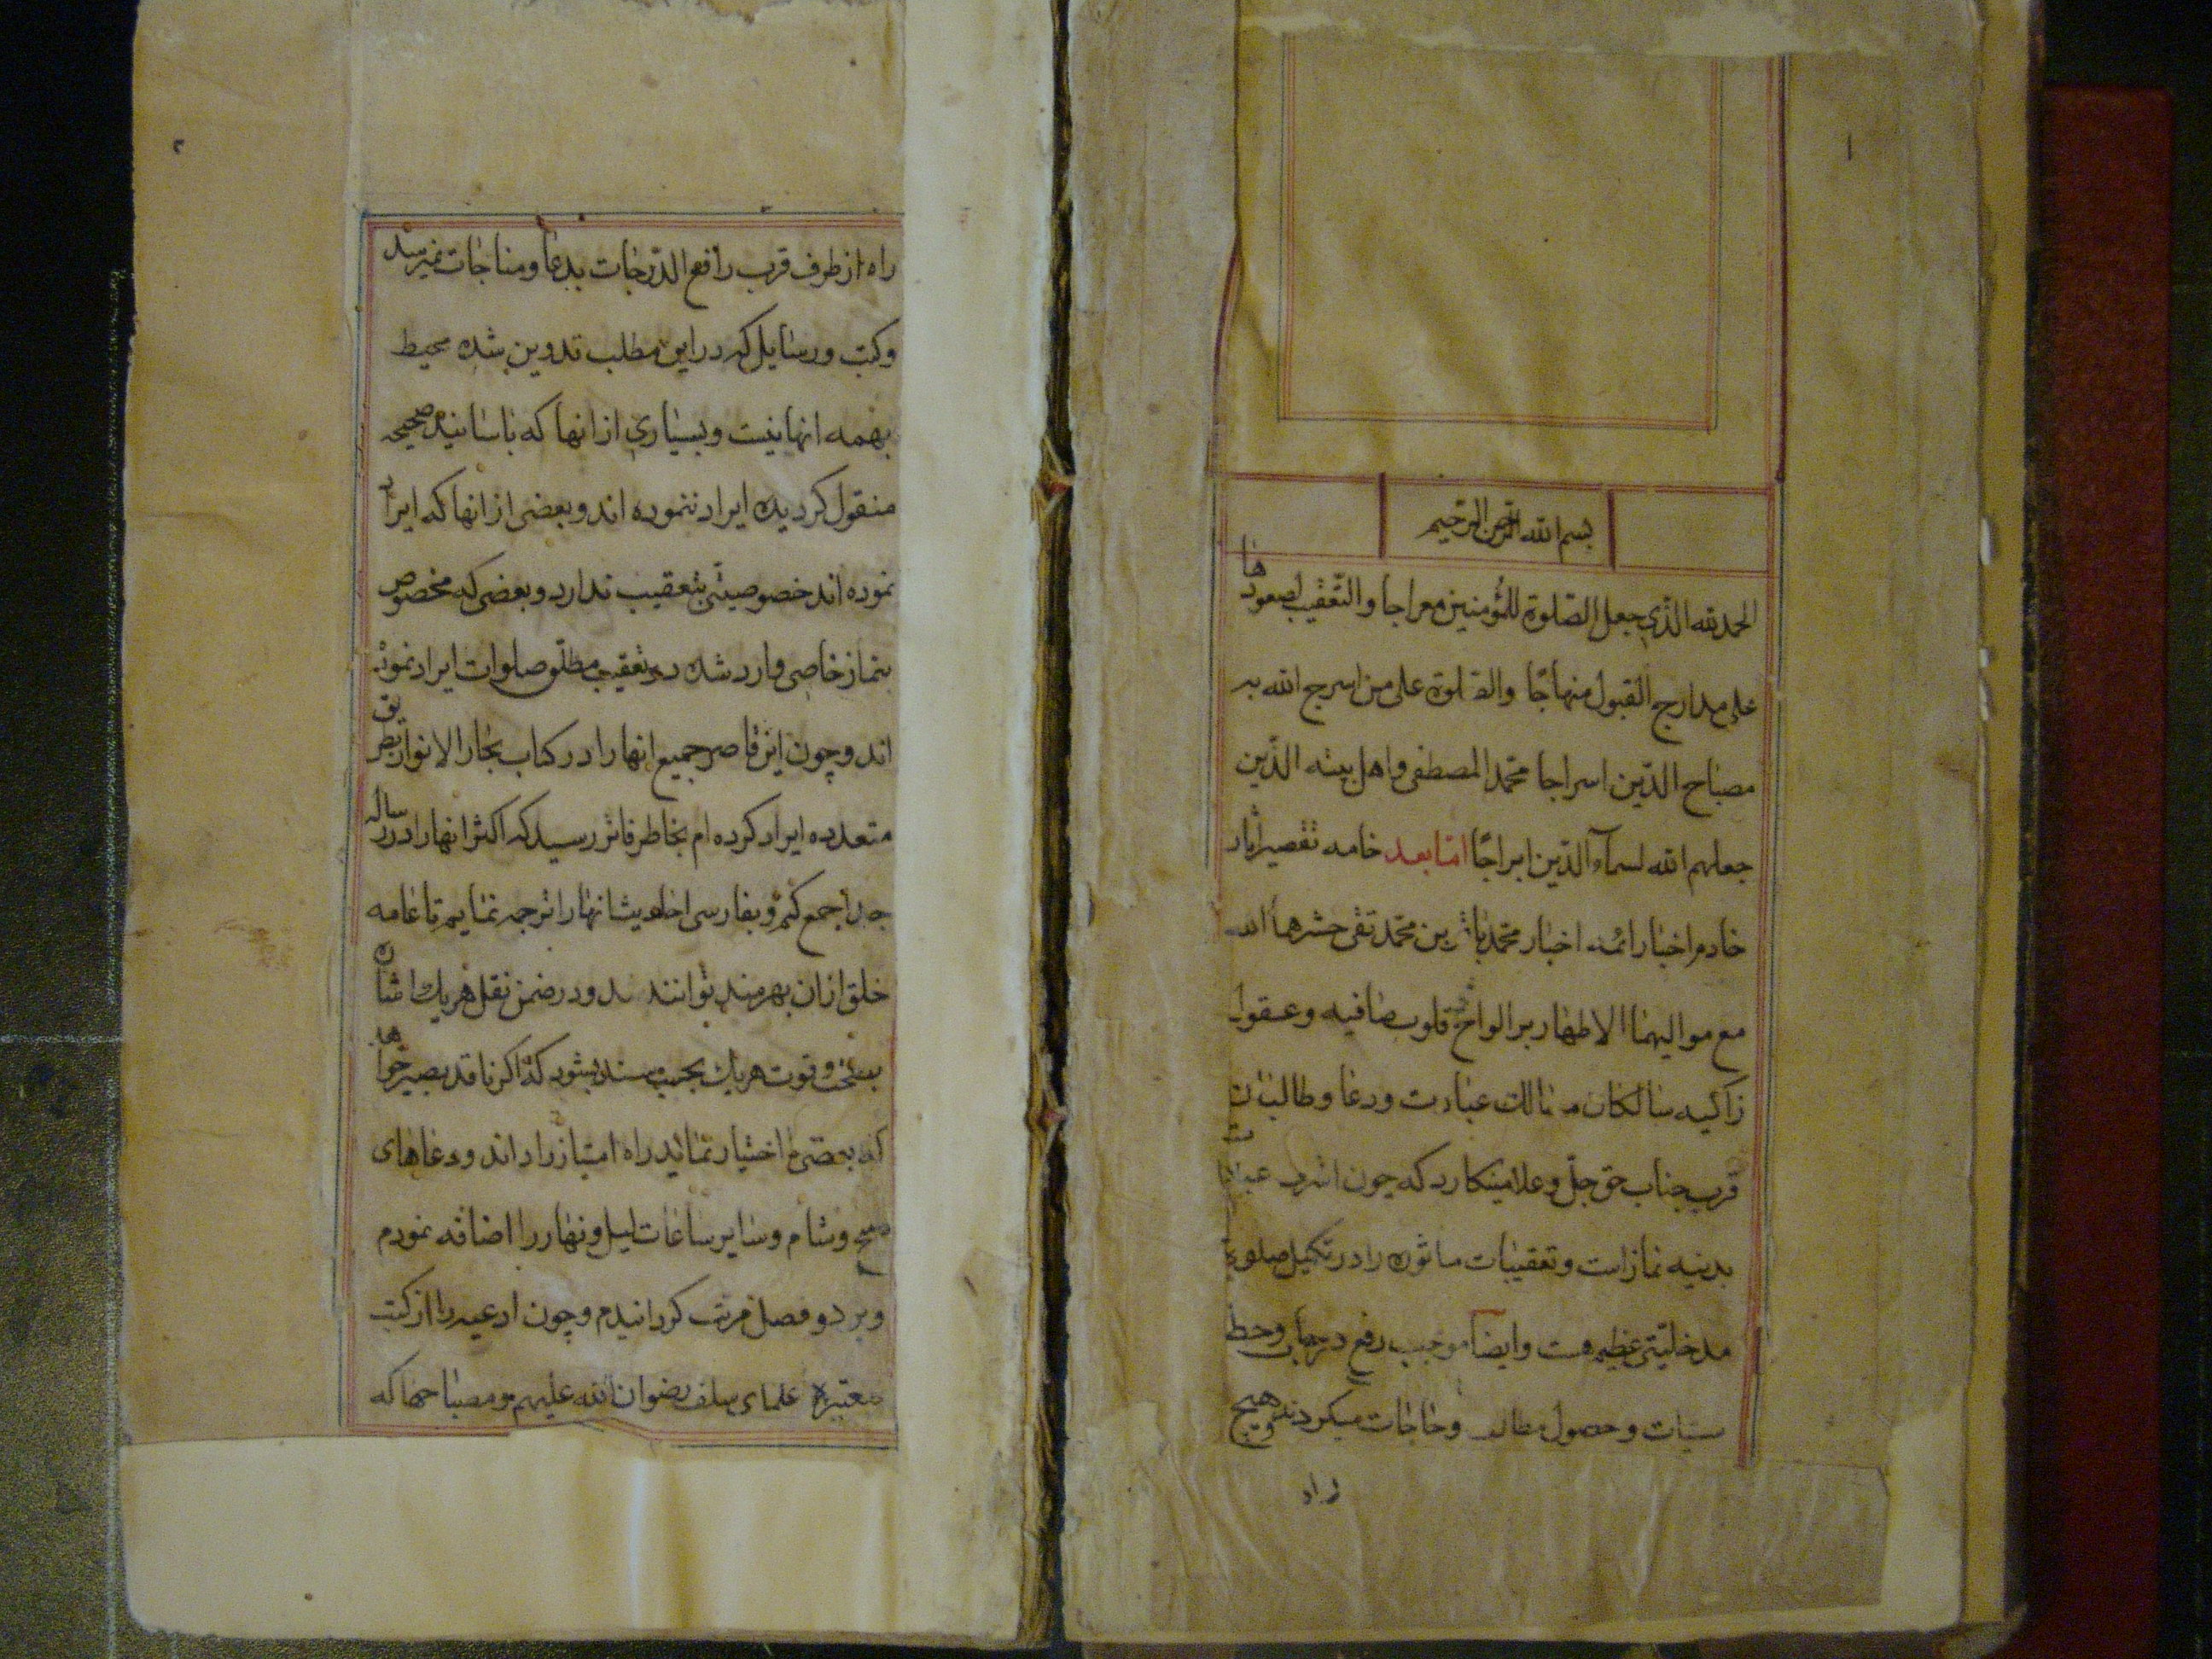 ۱
بسم الله الرحمن الرحیم
الحمد لله الذی جعل الصلوة للمؤمنین معراجا والتعقیب لصعودها
علی مدارج القبول منهاجًا والصلوة علی من اسرج الله به
مصباح الدین اسراجا محمد المصطفی واهل بیته الذین
جعلهم الله لسمآء الدین ابراجًا امّا بعد خامه تقصیر اثار
خادم اخبار ائمه اخبار محمد باقر بن محمد تقی حشرهما الله
مع موالیهما الاطهار بر الواح قلوب صافیه وعقول
زاکیه سالکان مسالک عبادت ودعا وطالبان
قرب جناب حق جلّ وعلا مینکارد که چون اشرف عبادات
بدنیه نماز است وتعقیبات ماثوره را در تکمیل صلوة
مدخلیّتی عظیم هست وایضاً موجب رفع درجات وحط
سیئات وحصول مطالب وحاجات میکردند وهیچ
راه
۲
راه از طرف قرب رافع الدّرجات بدعا ومناجات نمیرسد
وکتب ورسایل که در این مطلب تدوین شده محیط
بهمه انها نیست وبسیاری از انها که باسانید صحیحه
منقول کردیده ایراد ننموده اند وبعضی از انها که ایراد
نموده اند خصوصیتی بتعقیب ندارد وبعضی که مخصوص
بنماز خاصی وارد شده در تعقیب مطلق صلوات ایراد نموده
اند وچون این قاصر جمیع انها را در کتاب بحار الانوار بطریق
متعدده ایراد کرده ام بخاطر فاتر رسید که اکثر انها را در رساله
جدا جمع کنم وبفارسی احادیث انها را ترجمه نمایم تا عامه
خلق از ان بهرمند توانند شد ودر ضمن نقل هریک اشان
بصحت وقوت هریک بحسب سند بشود که اکر ناقد بصیر خواهد
که بعضی را اختیار نماید راه امتیاز را داند ودعاهای
صبح وشام وسایر ساعات لیل ونهار را اضافه نمودم
وبر دو فصل مرتب کردانیدم وچون ادعیه را از کتب
معتبره علمای سلف رضوان الله علیهم ومصباحها که